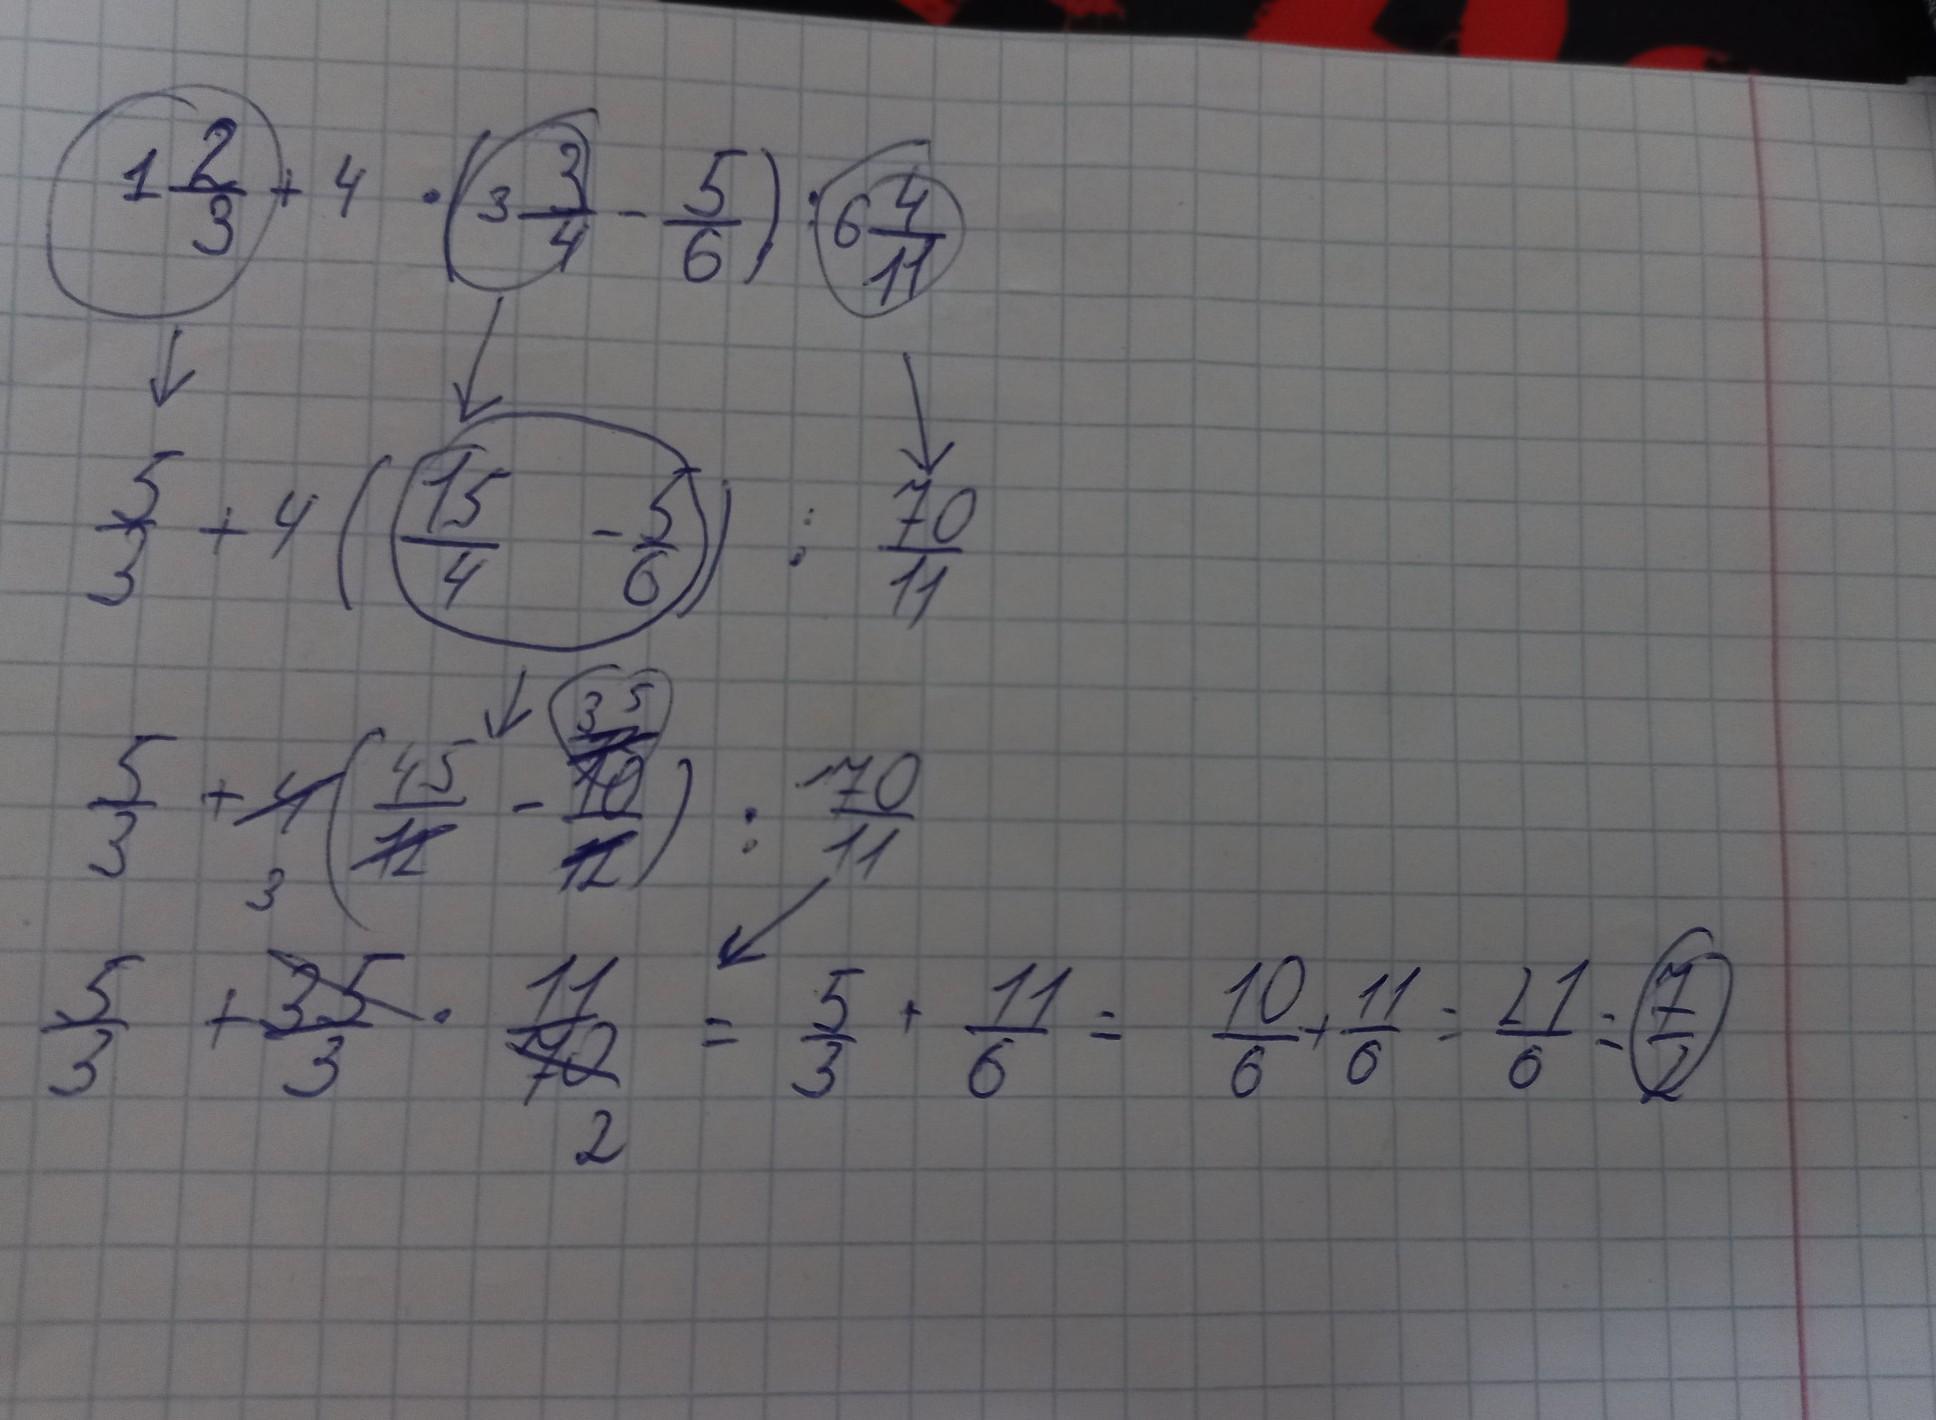 1 2/3 + 4 · (3 3/4 - 5/6) : 6 4/11
5/3 + 4 (15/4 - 5/6) : 70/11
35
5/3 + 4 (45/12 - 10/12) : 70/11
3
5/3 + 35/3 · 11/70 = 5/3 + 11/6 = 10/6 + 11/6 = 21/6 = 7/2
2